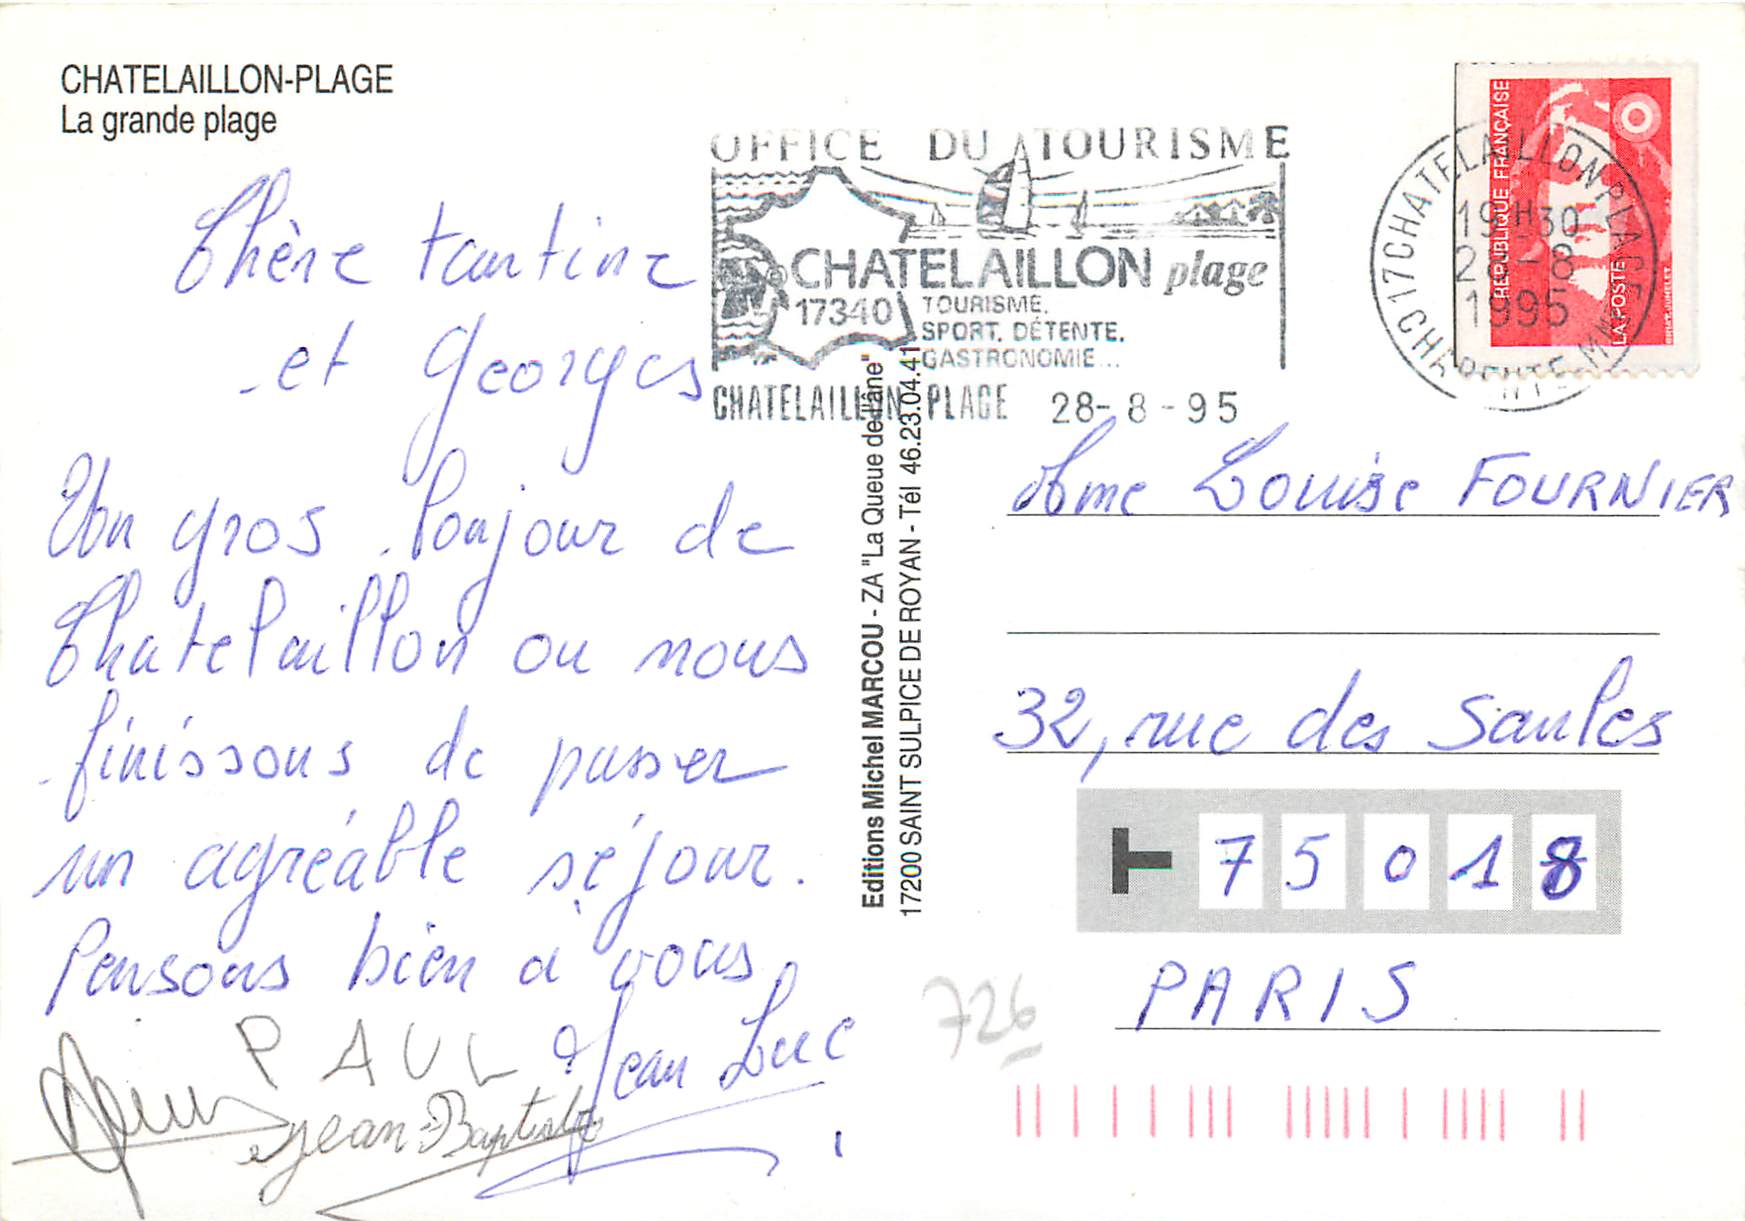 CHATELAILLON-PLAGE
La grande plage
Chère tantine
et Georges
Un gros bonjour de
Chatelaillon ou nous
finissons de passer
un agréable séjour.
Pensons bien à vous
PAUL
Jean Luc
Jean Baptiste
Editions Michel MARCOU - ZA "La Queue de l'âne"
17200 SAINT SULPICE DE ROYAN - Tél 46.23.04.41
OFFICE DU TOURISME
CHATELAILLON plage
17340
TOURISME.
SPORT. DÉTENTE.
GASTRONOMIE...
CHATELAILLON PLAGE 28-8-95
RÉPUBLIQUE FRANÇAISE
LA POSTE
17 CHATELAILLON-PLAGE
19H30
28-8
1995
CHARENTE MME
Mme Louise FOURNIER
32, rue des Saules
75018
PARIS
726